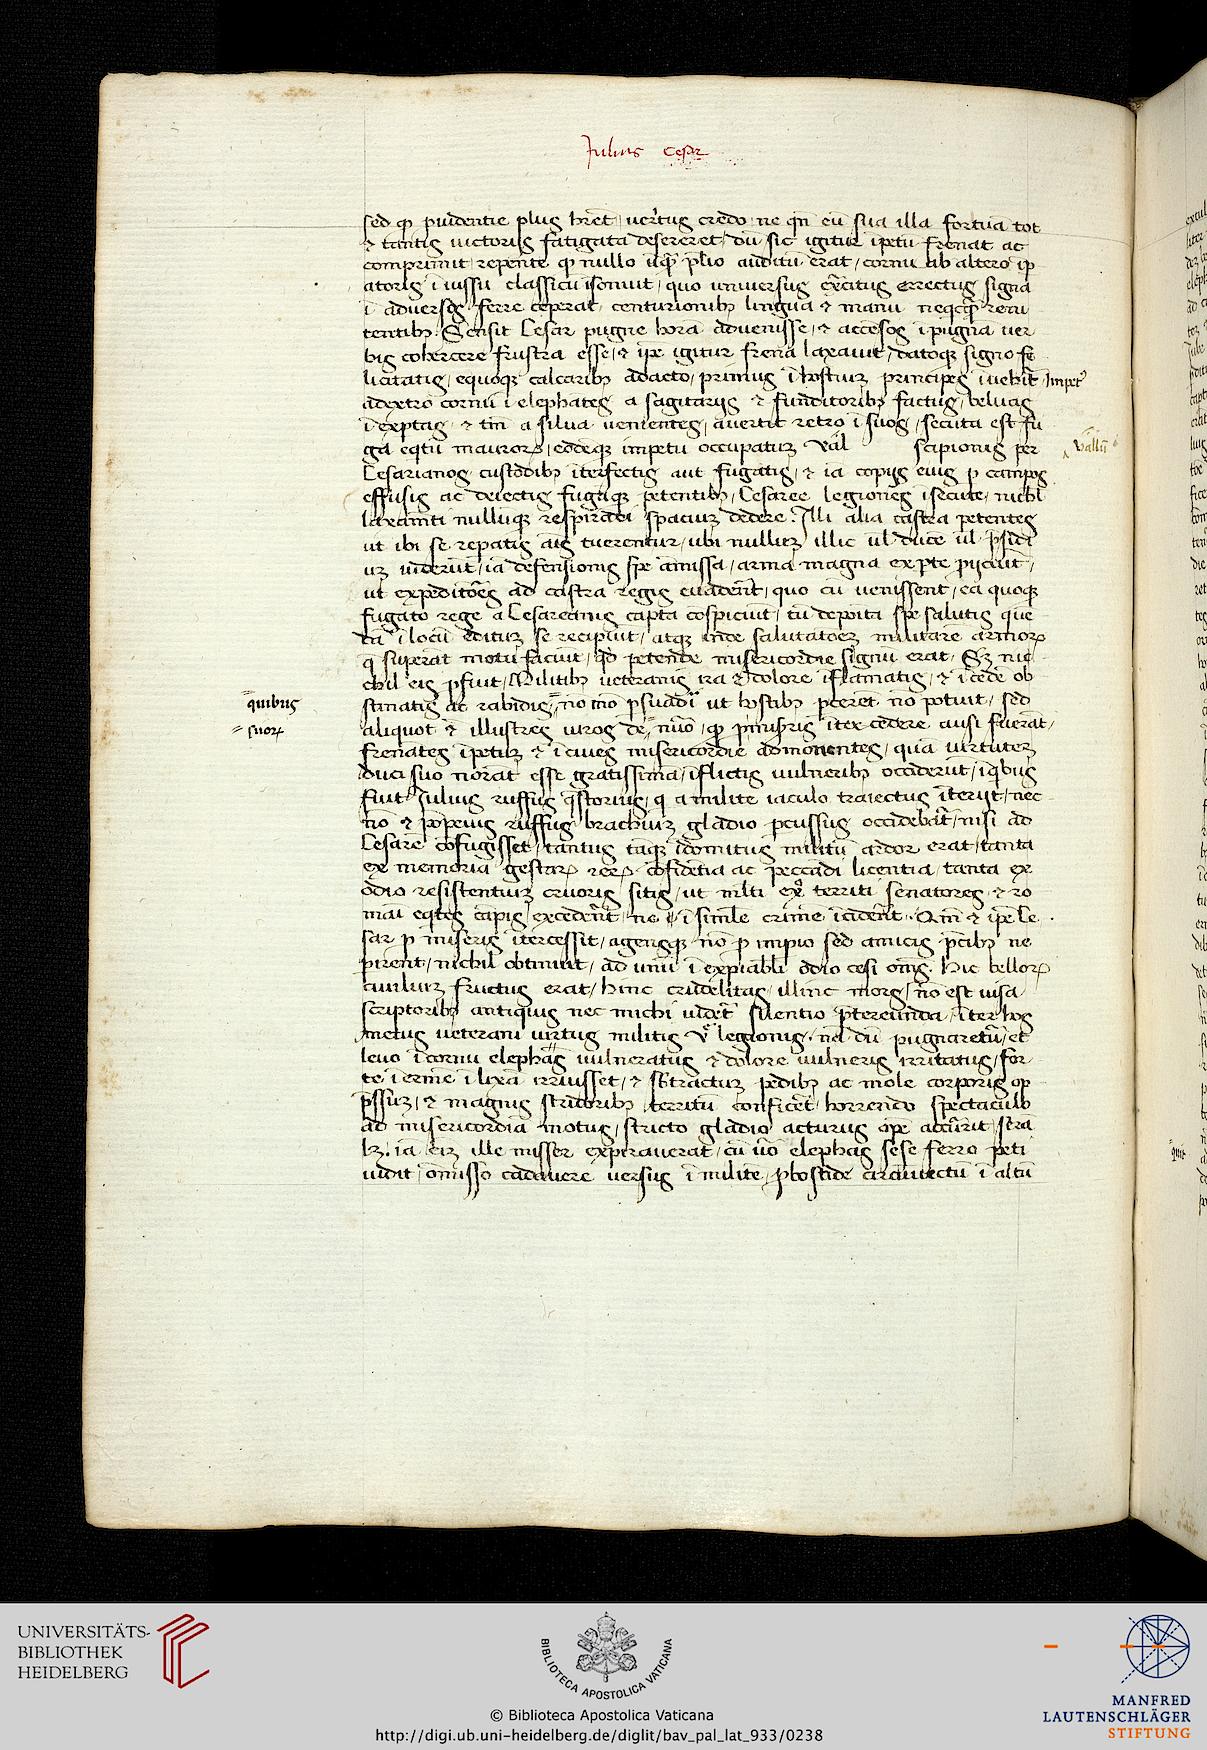 Julius Cesar
sed qz prudentie plus hret uertus credo ne qn eu sua illa fortuna tot
& tantis uictoriis fatigata desereret du sic igitur ipetu frenat ac
comprimit repente qz nullo uqz plio auditu erat cornu ab altero ip
atoris i iussu classicu isonuit quo uniuersus exercitus errectus signa
i aduersos ferre ceperat centurionibus lingua & manu neqcqz renu
tentibus Sensit Cesar pugne hora aduenisse & accesos i pugna uer
bis cohercere frustra esse & ipe igitur frena laxauit datoqz signo fe
licitatis equoqz calcaribus adacto primus i hostium principes iuehit impet
adextro cornu i elephates a sagitarijs & funditoribus factus beluas
i exptas & tm a silua uenientes auertit retro i suos secuta est fu
ga eqtu mauror eodeqz impetu occupatuz val scipionis per
vallu
Cesarianos custodibus iterfectis aut fugatis & ia copijs eius p campos
effusis ac deiectis fugaqz petentibus Cesaree legiones isecute nichil
laxameti nulluqz respiradi spaciuz dedere Illi alia castra petentes
ut ibi se repatis ais tuerentur ubi nulluz illic ul duce ul psidi
uz uiderut ia defensionis spe amissa arma magna ex pte pijciut
ut expeditores ad castra regis euaderet quo cu uenissent ea quoqz
fugato rege a Cesareanis capta cospiciut tu deposita spe salutis que
da i locu edituz se recipiut atqz inde salutatoez militare armor
q superat motu faciut qd petende misericordie signu erat Sz ni
chil eis pfuit Militibus ueteranis ira & dolore iflamatis & i cede ob
quibus
stinatis ac rabidis no mo psuaderi ut hostibus pceret no potuit sed
suor
aliquot & illustres uiros de nuo qz itercedere ausi fuerat
frenates ipetuz & i ciues misericordie admonentes qua uirtutez
duci suo norat esse gratissima iflictis uulneribus occiderut i qbus
fuit Julius ruffus qstorius q a milite iaculo traiectus iterijt nec
no & popeius ruffus brachiuz gladio pcussus occidebat nisi ad
Cesare cofugisset tantus taqz idomitus militu ardor erat tanta
ex memoria gestar rer cofidetia ac peccadi licentia tanta ex
odio resistentiuz cruoris sitis ut mlti territi senatores & ro
mai eqtes capis excederet ne i simile crime icideret Qm & ipe Ce
sar p miseris itercessit agensqz no p impio sed amicis pcibus ne
pirent nichil obtinuit ad unu i expiabili odio cesi oms Hic bellor
ciuiliuz fructus erat hinc crudelitas illinc mors no est uisa
scriptoribus antiquis nec michi uidet silentio ptereunda iter hos
metus ueterani uirtus militis v legionis na du pugnaretur et
leuo i cornu elephas uulneratus & dolore uulneris irritatus for
te i erme i lixa irruisset & substractuz pedibus ac mole corporis op
pssuz & magnis stridoribus territu conficeret horrendo spectaculo
ad misericordia motus stricto gladio acturus ope accurrit
ia eiz ille misser expirauerat cu uo elephas sese ferro peti
uidit omisso cadauere uersus i milite pboscide circuuectu i altu
UNIVERSITÄTS-
BIBLIOTHEK
HEIDELBERG
BIBLIOTECA APOSTOLICA VATICANA
© Biblioteca Apostolica Vaticana
http://digi.ub.uni-heidelberg.de/diglit/bav_pal_lat_933/0238
MANFRED
LAUTENSCHLÄGER
STIFTUNG